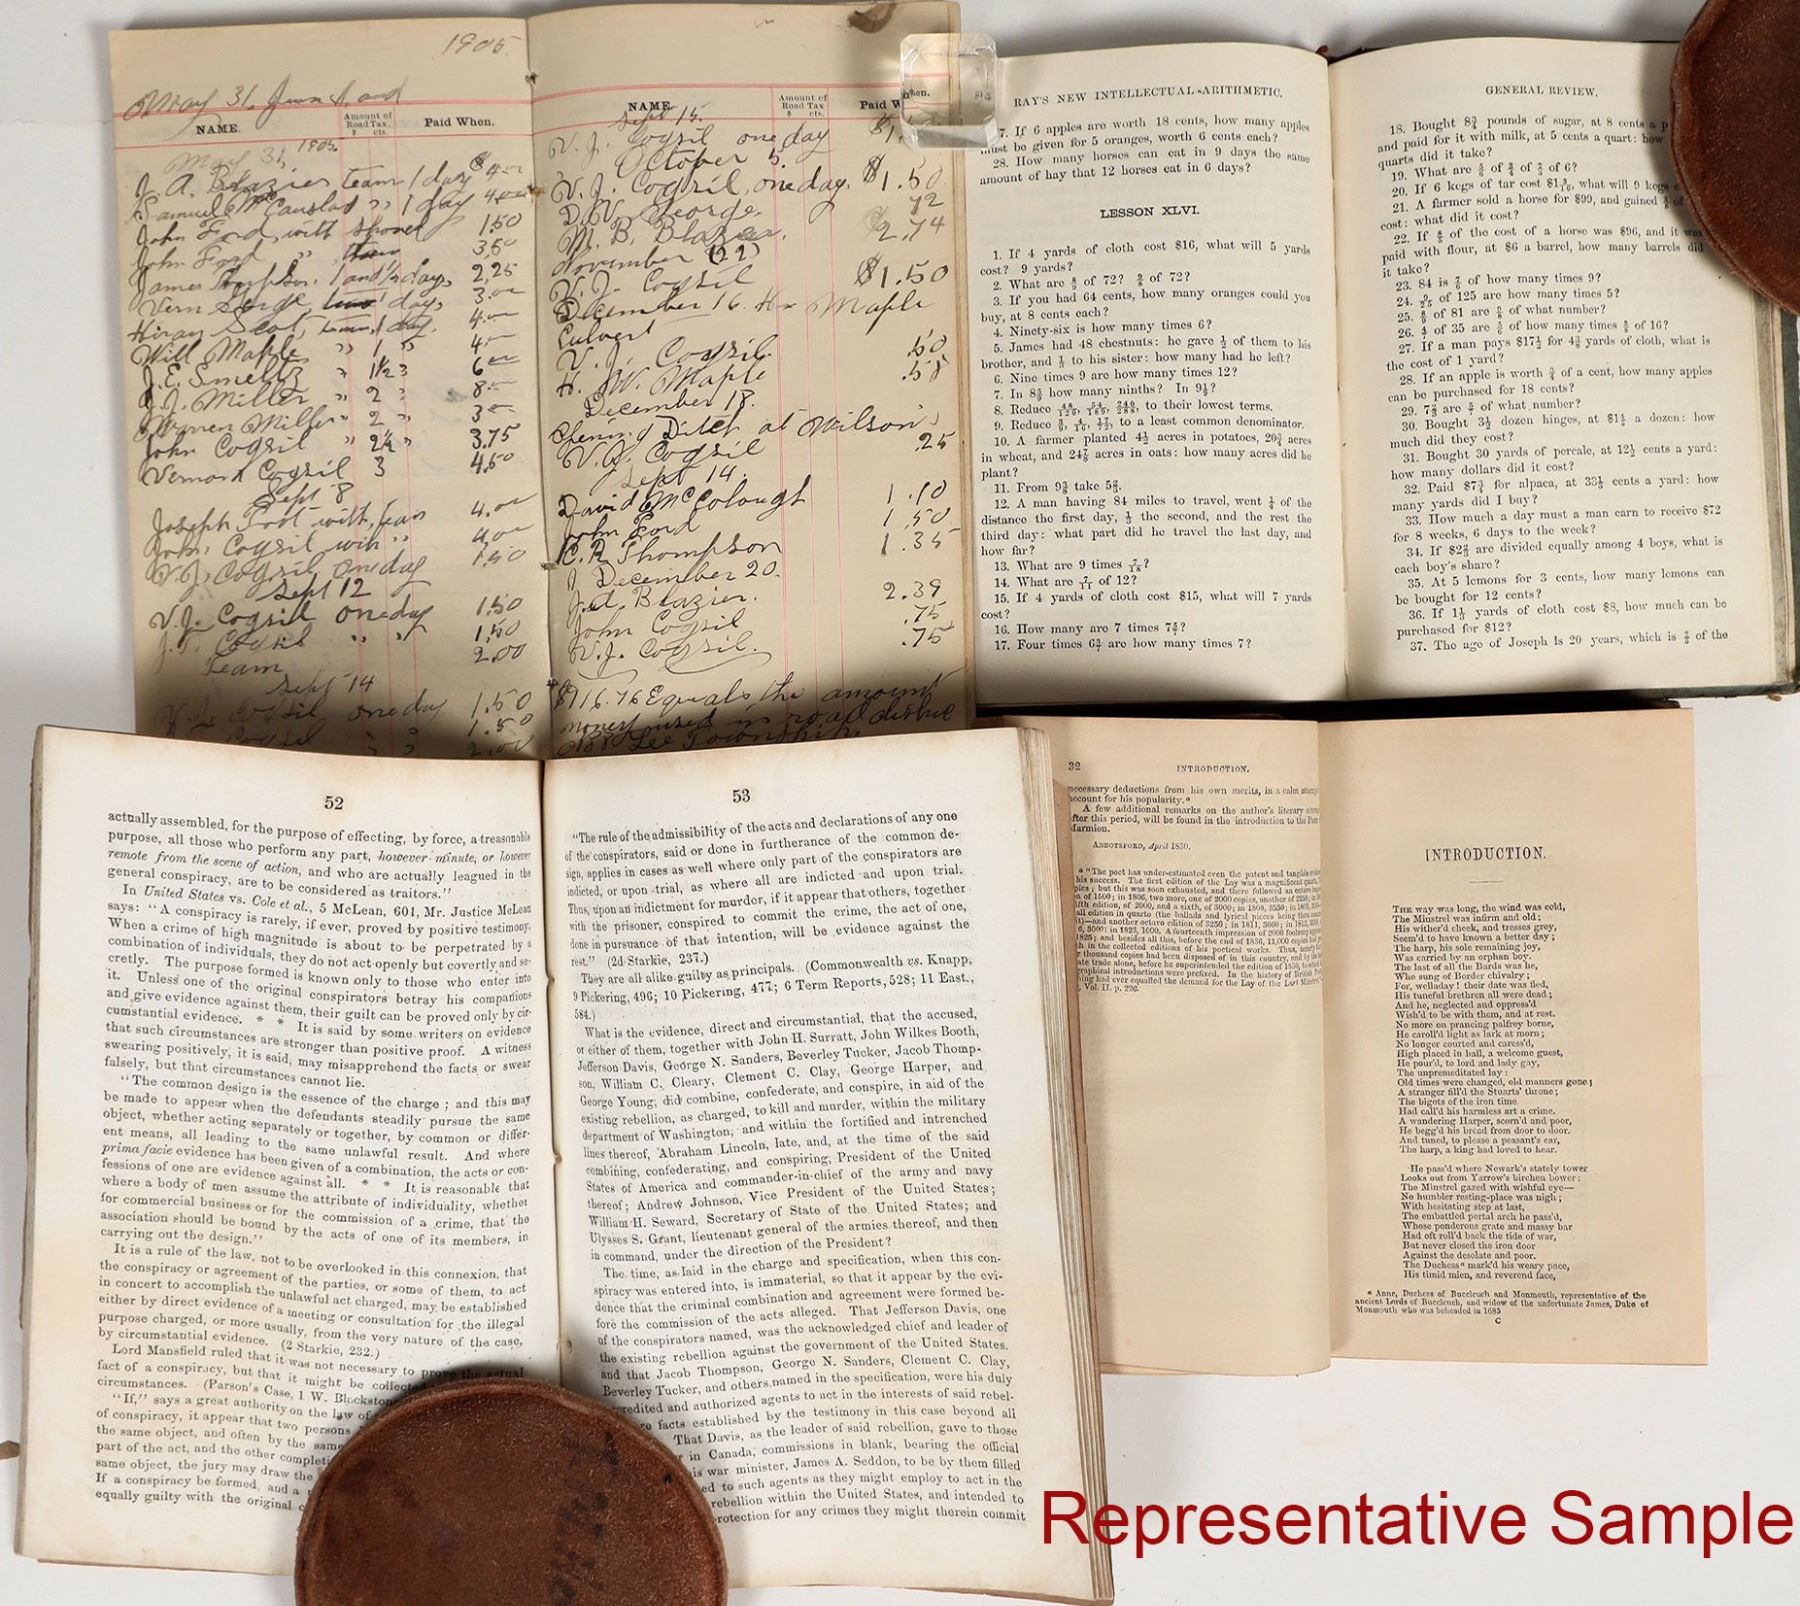 1905
May 31, June 1, and
NAME.
Amount of
Road Tax.
$ cts.
Paid When.
May 31, 1905.
J. A. Blazier, team 1 day $4.00
Samuel 1 day 4.00
John Ford, with shovel 1.50
John Ford " 3.50
James Thompson 1 and ½ days 2.25
Vern days 3.00
Hiram 1 day. 4.00
Will Maple " 1 " 4.00
J. E. Smeltz " 1½ " 6.00
J. J. Miller " 2 " 8.00
Warren Miller " 2 " 3.00
John Cogsil " 2½ " 3.75
Vernon Cogsil 3 4.50
Sept 8
Joseph Root with team 4.00
John Cogsil with " 4.00
V. J. Cogsil one day 1.50
Sept 12
V. J. Cogsil one day 1.50
J. F. Cogsil " " 1.50
Team 2.00
Sept 14
V. J. Cogsil one day 1.50
Cogsil " " 1.50
2.00
NAME.
Amount of
Road Tax
$ cts.
Paid W
hen.
Sept 15.
V. J. Cogsil one day $1.
October 5.
V. J. Cogsil, one day. $1.50
D. W. George, 72
M. B. Blazier. 2.74
November (22)
V. J. Cogsil $1.50
December 16. Maple
Culvert
V. J. Cogsil .50
H. W. Maple .50
December 18.
Opening Ditch at Wilson's
V. J. Cogsil .25
Sept 14.
David McColough 1.10
John Ford 1.50
C. R. Thompson 1.35
December 20.
J. A. Blazier. 2.39
John Cogsil .75
V. J. Cogsil. .75
$116.76 Equals the amount
money used in road district
Lee Township
RAY'S NEW INTELLECTUAL ARITHMETIC.
7. If 6 apples are worth 18 cents, how many apples
must be given for 5 oranges, worth 6 cents each?
28. How many horses can eat in 9 days the same
amount of hay that 12 horses eat in 6 days?
LESSON XLVI.
1. If 4 yards of cloth cost $16, what will 5 yards
cost? 9 yards?
2. What are of 72? of 72?
3. If you had 64 cents, how many oranges could you
buy, at 8 cents each?
4. Ninety-six is how many times 6?
5. James had 48 chestnuts: he gave ½ of them to his
brother, and to his sister: how many had he left?
6. Nine times 9 are how many times 12?
7. In how many ninths? In
8. Reduce to their lowest terms.
9. Reduce to a least common denominator.
10. A farmer planted 4½ acres in potatoes, 20¾ acres
in wheat, and 24⅞ acres in oats: how many acres did he
plant?
11. From take
12. A man having 84 miles to travel, went ¼ of the
distance the first day, ⅓ the second, and the rest the
third day: what part did he travel the last day, and
how far?
13. What are 9 times
14. What are of 12?
15. If 4 yards of cloth cost $15, what will 7 yards
cost?
16. How many are 7 times
17. Four times are how many times 7?
GENERAL REVIEW.
18. Bought 8¾ pounds of sugar, at 8 cents a p
and paid for it with milk, at 5 cents a quart: how
quarts did it take?
19. What are of of of 6?
20. If 6 kegs of tar cost what will 9 kegs
21. A farmer sold a horse for $99, and gained of
cost: what did it cost?
22. If of the cost of a horse was $96, and it was
paid with flour, at $6 a barrel, how many barrels did
it take?
23. 84 is of how many times 9?
24. of 125 are how many times 5?
25. of 81 are of what number?
26. of 35 are of how many times of 16?
27. If a man pays $17½ for yards of cloth, what is
the cost of 1 yard?
28. If an apple is worth ¾ of a cent, how many apples
can be purchased for 18 cents?
29. 7⅔ are of what number?
30. Bought 3½ dozen hinges, at a dozen: how
much did they cost?
31. Bought 30 yards of percale, at 12½ cents a yard:
how many dollars did it cost?
32. Paid $7¾ for alpaca, at 33⅓ cents a yard: how
many yards did I buy?
33. How much a day must a man earn to receive $72
for 8 weeks, 6 days to the week?
34. If are divided equally among 4 boys, what is
each boy's share?
35. At 5 lemons for 3 cents, how many lemons can
be bought for 12 cents?
36. If yards of cloth cost $8, how much can be
purchased for $12?
37. The age of Joseph is 20 years, which is of the
52
actually assembled, for the purpose of effecting, by force, a treasonable
purpose, all those who perform any part, however minute, or however
remote from the scene of action, and who are actually leagued in the
general conspiracy, are to be considered as traitors."
In United States vs. Cole et al., 5 McLean, 601, Mr. Justice McLean
says: "A conspiracy is rarely, if ever, proved by positive testimony.
When a crime of high magnitude is about to be perpetrated by a
combination of individuals, they do not act openly but covertly and se-
cretly. The purpose formed is known only to those who enter into
it. Unless one of the original conspirators betray his companions
and give evidence against them, their guilt can be proved only by cir-
cumstantial evidence. * * It is said by some writers on evidence
that such circumstances are stronger than positive proof. A witness
swearing positively, it is said, may misapprehend the facts or swear
falsely, but that circumstances cannot lie.
"The common design is the essence of the charge; and this may
be made to appear when the defendants steadily pursue the same
object, whether acting separately or together, by common or differ-
ent means, all leading to the same unlawful result. And where
prima facie evidence has been given of a combination, the acts or con-
fessions of one are evidence against all. * * It is reasonable that
where a body of men assume the attribute of individuality, whether
for commercial business or for the commission of a crime, that the
association should be bound by the acts of one of its members, in
carrying out the design."
It is a rule of the law, not to be overlooked in this connexion, that
the conspiracy or agreement of the parties, or some of them, to act
in concert to accomplish the unlawful act charged, may be established
either by direct evidence of a meeting or consultation for the illegal
purpose charged, or more usually, from the very nature of the case,
by circumstantial evidence. (2 Starkie, 232.)
Lord Mansfield ruled that it was not necessary to prove the actual
fact of a conspiracy, but that it might be collected
circumstances. (Parson's Case, 1 W. Blackston
"If," says a great authority on the law of
of conspiracy, it appear that two persons
the same object, and often by the same
part of the act, and the other completi
same object, the jury may draw the
If a conspiracy be formed, and a
equally guilty with the original c
53
"The rule of the admissibility of the acts and declarations of any one
of the conspirators, said or done in furtherance of the common de-
sign, applies in cases as well where only part of the conspirators are
indicted, or upon trial, as where all are indicted and upon trial.
Thus, upon an indictment for murder, if it appear that others, together
with the prisoner, conspired to commit the crime, the act of one,
done in pursuance of that intention, will be evidence against the
rest." (2d Starkie, 237.)
They are all alike guilty as principals. (Commonwealth vs. Knapp,
9 Pickering, 496; 10 Pickering, 477; 6 Term Reports, 528; 11 East.,
584.)
What is the evidence, direct and circumstantial, that the accused,
or either of them, together with John H. Surratt, John Wilkes Booth,
Jefferson Davis, George N. Sanders, Beverley Tucker, Jacob Thomp-
son, William C. Cleary, Clement C. Clay, George Harper, and
George Young, did combine, confederate, and conspire, in aid of the
existing rebellion, as charged, to kill and murder, within the military
department of Washington, and within the fortified and intrenched
lines thereof, Abraham Lincoln, late, and, at the time of the said
combining, confederating, and conspiring, President of the United
States of America and commander-in-chief of the army and navy
thereof; Andrew Johnson, Vice President of the United States;
William H. Seward, Secretary of State of the United States; and
Ulysses S. Grant, lieutenant general of the armies thereof, and then
in command, under the direction of the President?
The time, as laid in the charge and specification, when this con-
spiracy was entered into, is immaterial, so that it appear by the evi-
dence that the criminal combination and agreement were formed be-
fore the commission of the acts alleged. That Jefferson Davis, one
of the conspirators named, was the acknowledged chief and leader of
the existing rebellion against the government of the United States.
and that Jacob Thompson, George N. Sanders, Clement C. Clay,
Beverley Tucker, and others named in the specification, were his duly
accredited and authorized agents to act in the interests of said rebel-
re facts established by the testimony in this case beyond all
That Davis, as the leader of said rebellion, gave to those
r in Canada, commissions in blank, bearing the official
is war minister, James A. Seddon, to be by them filled
ed to such agents as they might employ to act in the
rebellion within the United States, and intended to
rotection for any crimes they might therein commit
32
INTRODUCTION.
necessary deductions from his own merits, in a calm attempt
account for his popularity.*
A few additional remarks on the author's literary
after this period, will be found in the introduction to the Poem
Marmion.
ABBOTSFORD, April 1830.
* "The poet has under-estimated even the patent and tangible
his success. The first edition of the Lay was a magnificent quarto,
pies; but this was soon exhausted, and there followed an octavo
n of 1500; in 1806, two more, one of 2000 copies, another of 2250;
fifth edition, of 2000, and a sixth, of 3000; in 1808, 3550; in 1809,
all edition in quarto (the ballads and lyrical pieces being then
—and another octavo edition of 3250; in 1811, 3000; in 1812,
6, 3000: in 1823, 1000. A fourteenth impression of 2000 foolscap
1825; and besides all this, before the end of 1836, 11,000 copies had
th in the collected editions of his poetical works. Thus, nearly
r thousand copies had been disposed of in this country, and by the
ate trade alone, before he superintended the edition of 1830, to which
graphical introductions were prefixed. In the history of British
hing had ever equalled the demand for the Lay of the Last Minstrel."
, Vol. II. p. 226.
INTRODUCTION.
THE way was long, the wind was cold,
The Minstrel was infirm and old;
His wither'd cheek, and tresses grey,
Seem'd to have known a better day;
The harp, his sole remaining joy,
Was carried by an orphan boy.
The last of all the Bards was he,
Who sung of Border chivalry;
For, welladay! their date was fled,
His tuneful brethren all were dead;
And he, neglected and oppress'd
Wish'd to be with them, and at rest.
No more on prancing palfrey borne,
He caroll'd light as lark at morn;
No longer courted and caress'd,
High placed in hall, a welcome guest,
He pour'd, to lord and lady gay,
The unpremeditated lay:
Old times were changed, old manners gone;
A stranger fill'd the Stuarts' throne;
The bigots of the iron time
Had call'd his harmless art a crime.
A wandering Harper, scorn'd and poor,
He begg'd his bread from door to door.
And tuned, to please a peasant's ear,
The harp, a king had loved to hear.
He pass'd where Newark's stately tower
Looks out from Yarrow's birchen bower:
The Minstrel gazed with wishful eye—
No humbler resting-place was nigh;
With hesitating step at last,
The embattled portal arch he pass'd,
Whose ponderous grate and massy bar
Had oft roll'd back the tide of war,
But never closed the iron door
Against the desolate and poor.
The Duchess* mark'd his weary pace,
His timid mien, and reverend face,
* Anne, Duchess of Buccleuch and Monmouth, representative of the
ancient Lords of Buccleuch, and widow of the unfortunate James, Duke of
Monmouth who was beheaded in 1685
C
Representative Sample